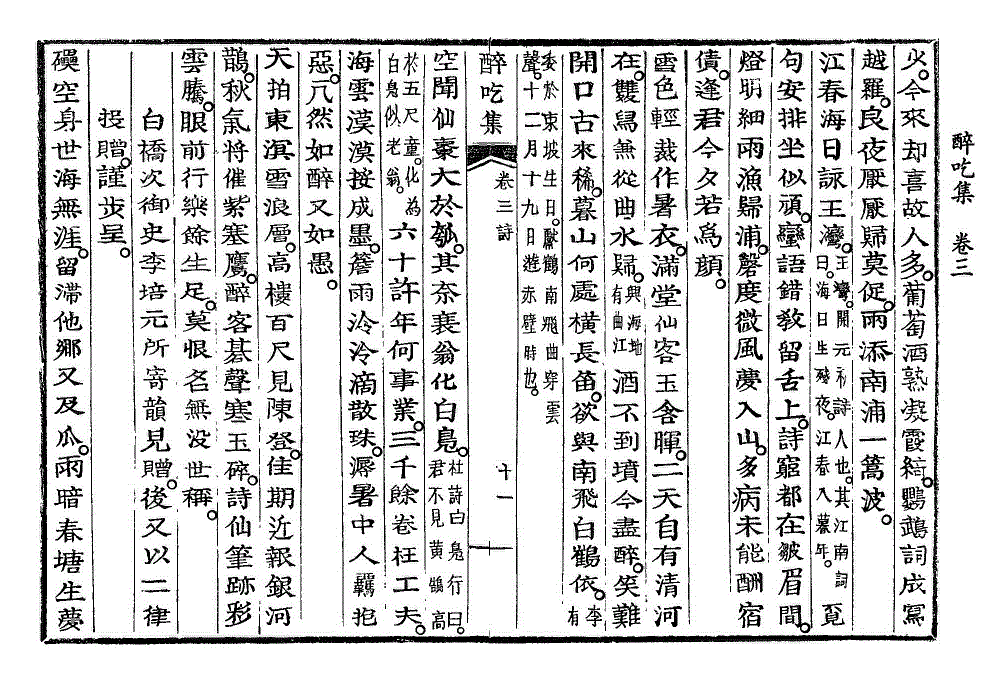 醉吃集 卷三
火今來却喜故人多葡萄酒熟凝霞綺鸚鵡詞成寫
越羅良夜厭厭歸莫促雨添南浦一篙波
江春海日詠王灣王灣開元初詩人也其江南詞曰海日生殘夜江春入暮年覓
句安排坐似頑蠻語錯敎留舌上詩窮都在皺眉間
燈明細雨漁歸浦磬度微風夢入山多病未能酬宿
債逢君今夕若爲顔
雪色輕裁作暑衣滿堂仙客玉含暉二天自有清河
在雙舄兼從曲水歸興海地有曲江酒不到墳今盡醉笑難
開口古來稀暮山何處橫長笛欲與南飛白鶴依李有
委於東坡生日獻鶴南飛曲穿雲聲十二月十九日遊赤壁時也
醉吃集 卷三 詩 十一
空聞仙棗大於瓠其奈衰翁化白鳧杜詩白鳧行曰君不見黃鵠高
於五尺童化爲白鳧似老翁六十許年何事業三千餘卷枉工夫
海雲漠漠接成墨簷雨泠泠滴散珠溽暑中人羈抱
惡兀然如醉又如愚
天拍東溟雪浪層高樓百尺見陳登佳期近報銀河
鵲秋氣將催紫塞鷹醉客碁聲寒玉碎詩仙筆跡彩
雲騰眼前行樂餘生足莫恨名無没世稱
白橋次御史李培元所寄韻見贈後又以二律
投贈謹步呈
礙空身世海無涯留滯他鄉又及瓜雨暗春塘生夢